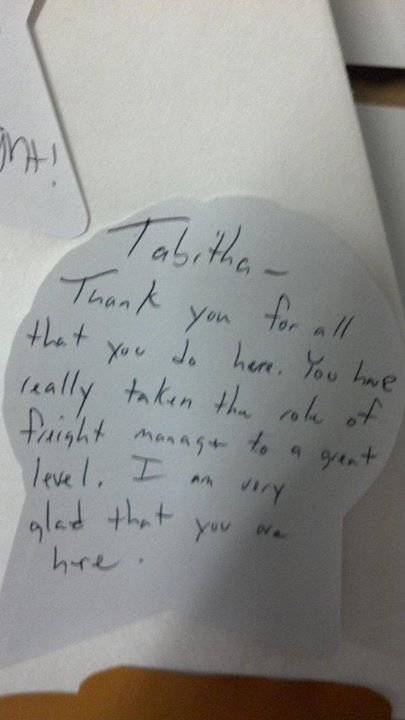 Tabitha -
Thank you for all
that you do here. You have
really taken the role of
freight manager to a great
level. I am very
glad that you are
here.